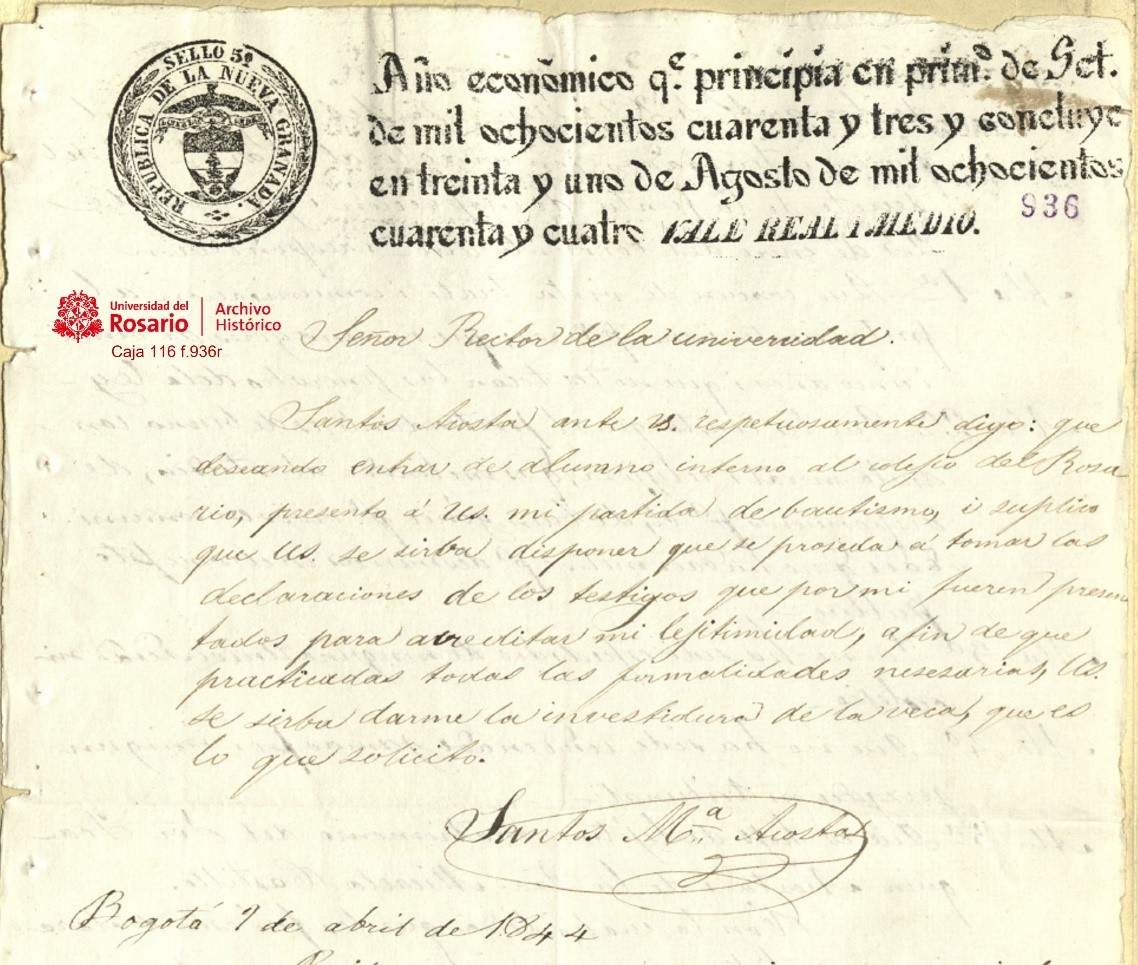 SELLO 5º
REPUBLICA DE LA NUEVA GRANADA.
Año económico q.e principia en prim.o de Set.
de mil ochocientos cuarenta y tres y concluye
en treinta y uno de Agosto de mil ochocientos
936
cuarenta y cuatro VALE REAL I MEDIO.
Universidad del
Rosario
Archivo
Histórico
Caja 116 f.936r
Señor Rector de la universidad.
Santos Acosta ante Us. respetuosamente digo: que
deseando entrar de alumno interno al colejio del Rosa
rio, presento á Us. mi partida de bautismo, i suplico
que Us. se sirba disponer que se proseda á tomar las
declaraciones de los testigos que por mi fueren presen
tados para acreditar mi lejitimidad, a fin de que
practicadas todas las formalidades nesesarias, Us.
se sirba darme la investidura de la veca, que es
lo que solicito.
Santos M.a Acosta
Bogotá de abril de 1844